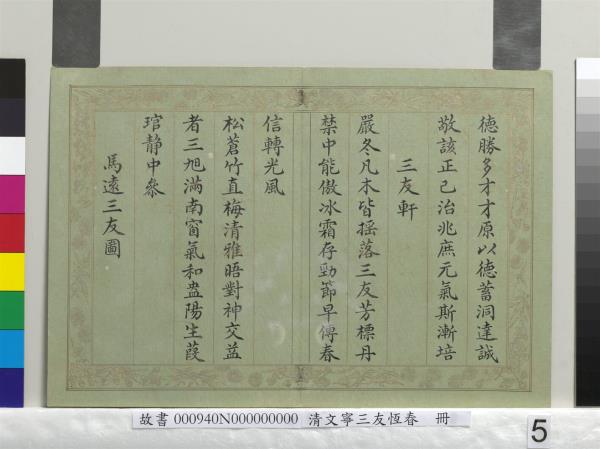 德勝多才才原以德蓄洞達誠
敬該正己治兆庶元氣斯漸培
三友軒
嚴冬凡木皆摇落三友芳標丹
禁中能傲冰霜存勁節早傳春
信轉光風
松蒼竹直梅清雅晤對神交益
者三旭滿南窗氣和盎陽生葭
琯靜中參
馬遠三友圖
故書 000940N000000000 清文寧三友恆春 冊
5